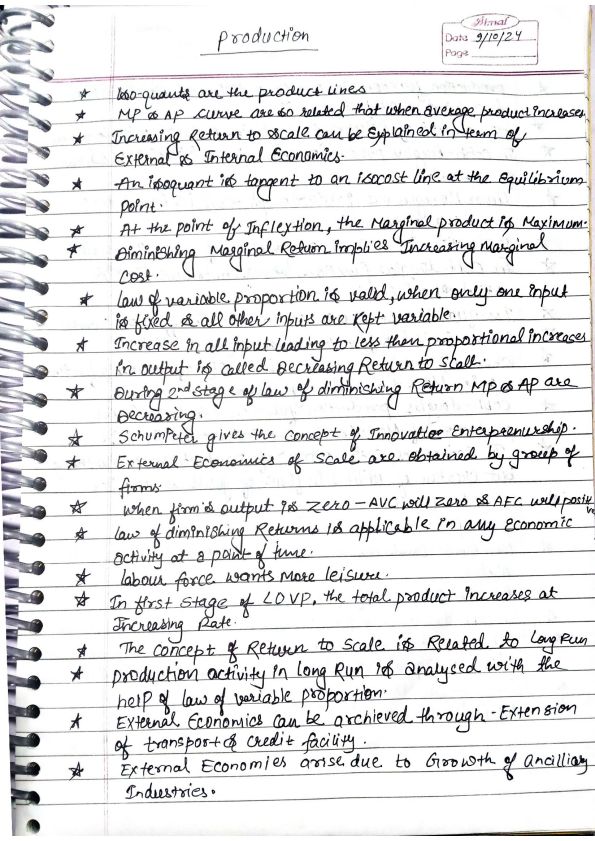 Production
Atmal
Date 9/10/24
Page
★ Iso-quants are the product lines
★ MP & AP curve are so related that when average product increases
★ Increasing Return to scale can be Explained in term of
External & Internal Economics.
★ An isoquant is tangent to an isocost line at the Equilibrium
Point.
★ At the point of Inflextion, the Marginal product is Maximum.
★ Diminishing Marginal Return implies Increasing Marginal
Cost.
★ law of variable proportion is valid, when only one input
is fixed & all other inputs are kept variable.
★ Increase in all input leading to less than proportional increases
in output is called Decreasing Return to Scale.
★ During 2nd stage of law of diminishing Return MP & AP are
Decreasing.
★ Schumpeter gives the concept of Innovative Enterprenurship.
★ External Economics of Scale are obtained by group of
firms.
★ When firm's output is Zero - AVC will Zero & AFC will
★ law of diminishing Returns is applicable in any Economic
activity at a point of time.
★ labour force wants More leisure.
★ In first Stage of LOVP, the total product increases at
Increasing Rate.
★ The concept of Return to Scale is Related to Long Run
★ production activity in long Run is analysed with the
help of law of variable proportion.
★ External Economics can be archieved through - Extension
of transport & credit facility.
★ External Economies arise due to Growth of Ancilliary
Industries.